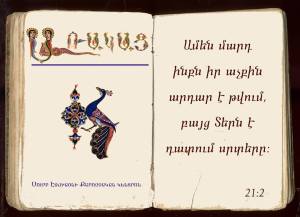 ԱՌԱԿԱՑ
Սուրբ Էջմիածնի Քարոզչական Կենտրոն
Ամեն մարդ
ինքն իր աչքին
արդար է թվում,
բայց Տերն է
դատում սրտերը։
21:2